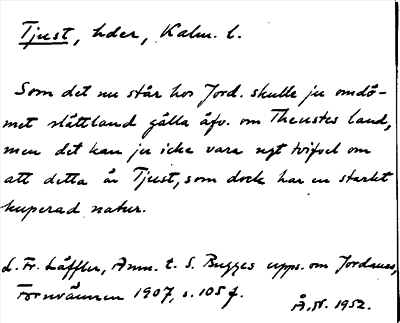 Tjust, hder, Kalm. l.
Som det nu står hos Jord. skulle ju omdö-
met slättland gälla äfv. om Theustes land,
men det kan ju icke vara ngt tvifvel om
att detta är Tjust, som dock har en starkt
kuperad natur.
L. Fr. Läffler, Anm. t. S. Bugges upps. om Jordanes,
Fornvännen 1907, s. 105 f.
Å.N. 1952.